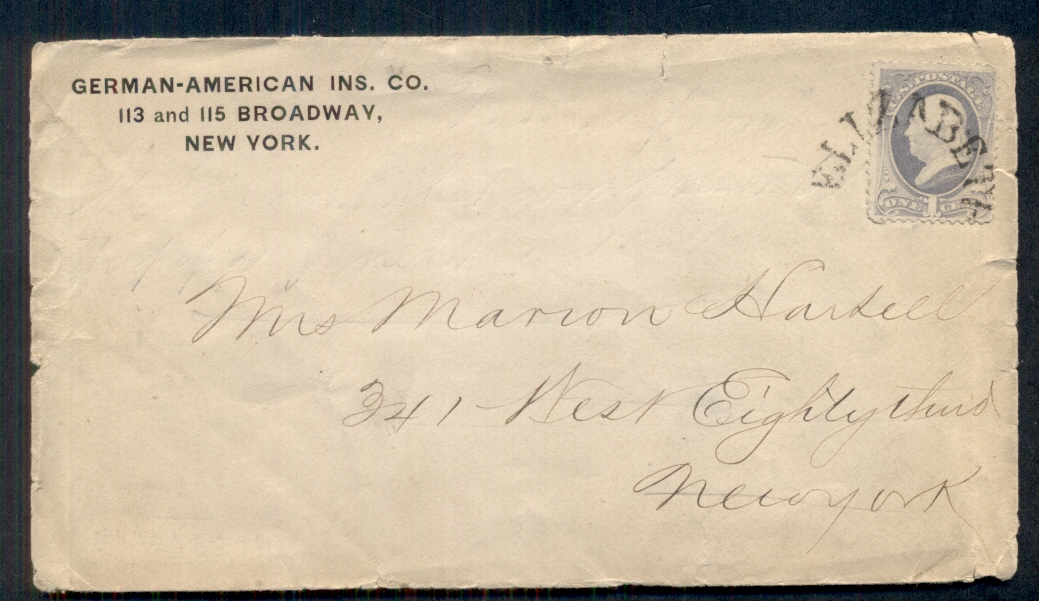 GERMAN-AMERICAN INS. CO.
113 and 115 BROADWAY,
NEW YORK.
U.S. POSTAGE
ELIZABE
ONE 1 CENT
Mrs Marion
341 West Eighty third
New york